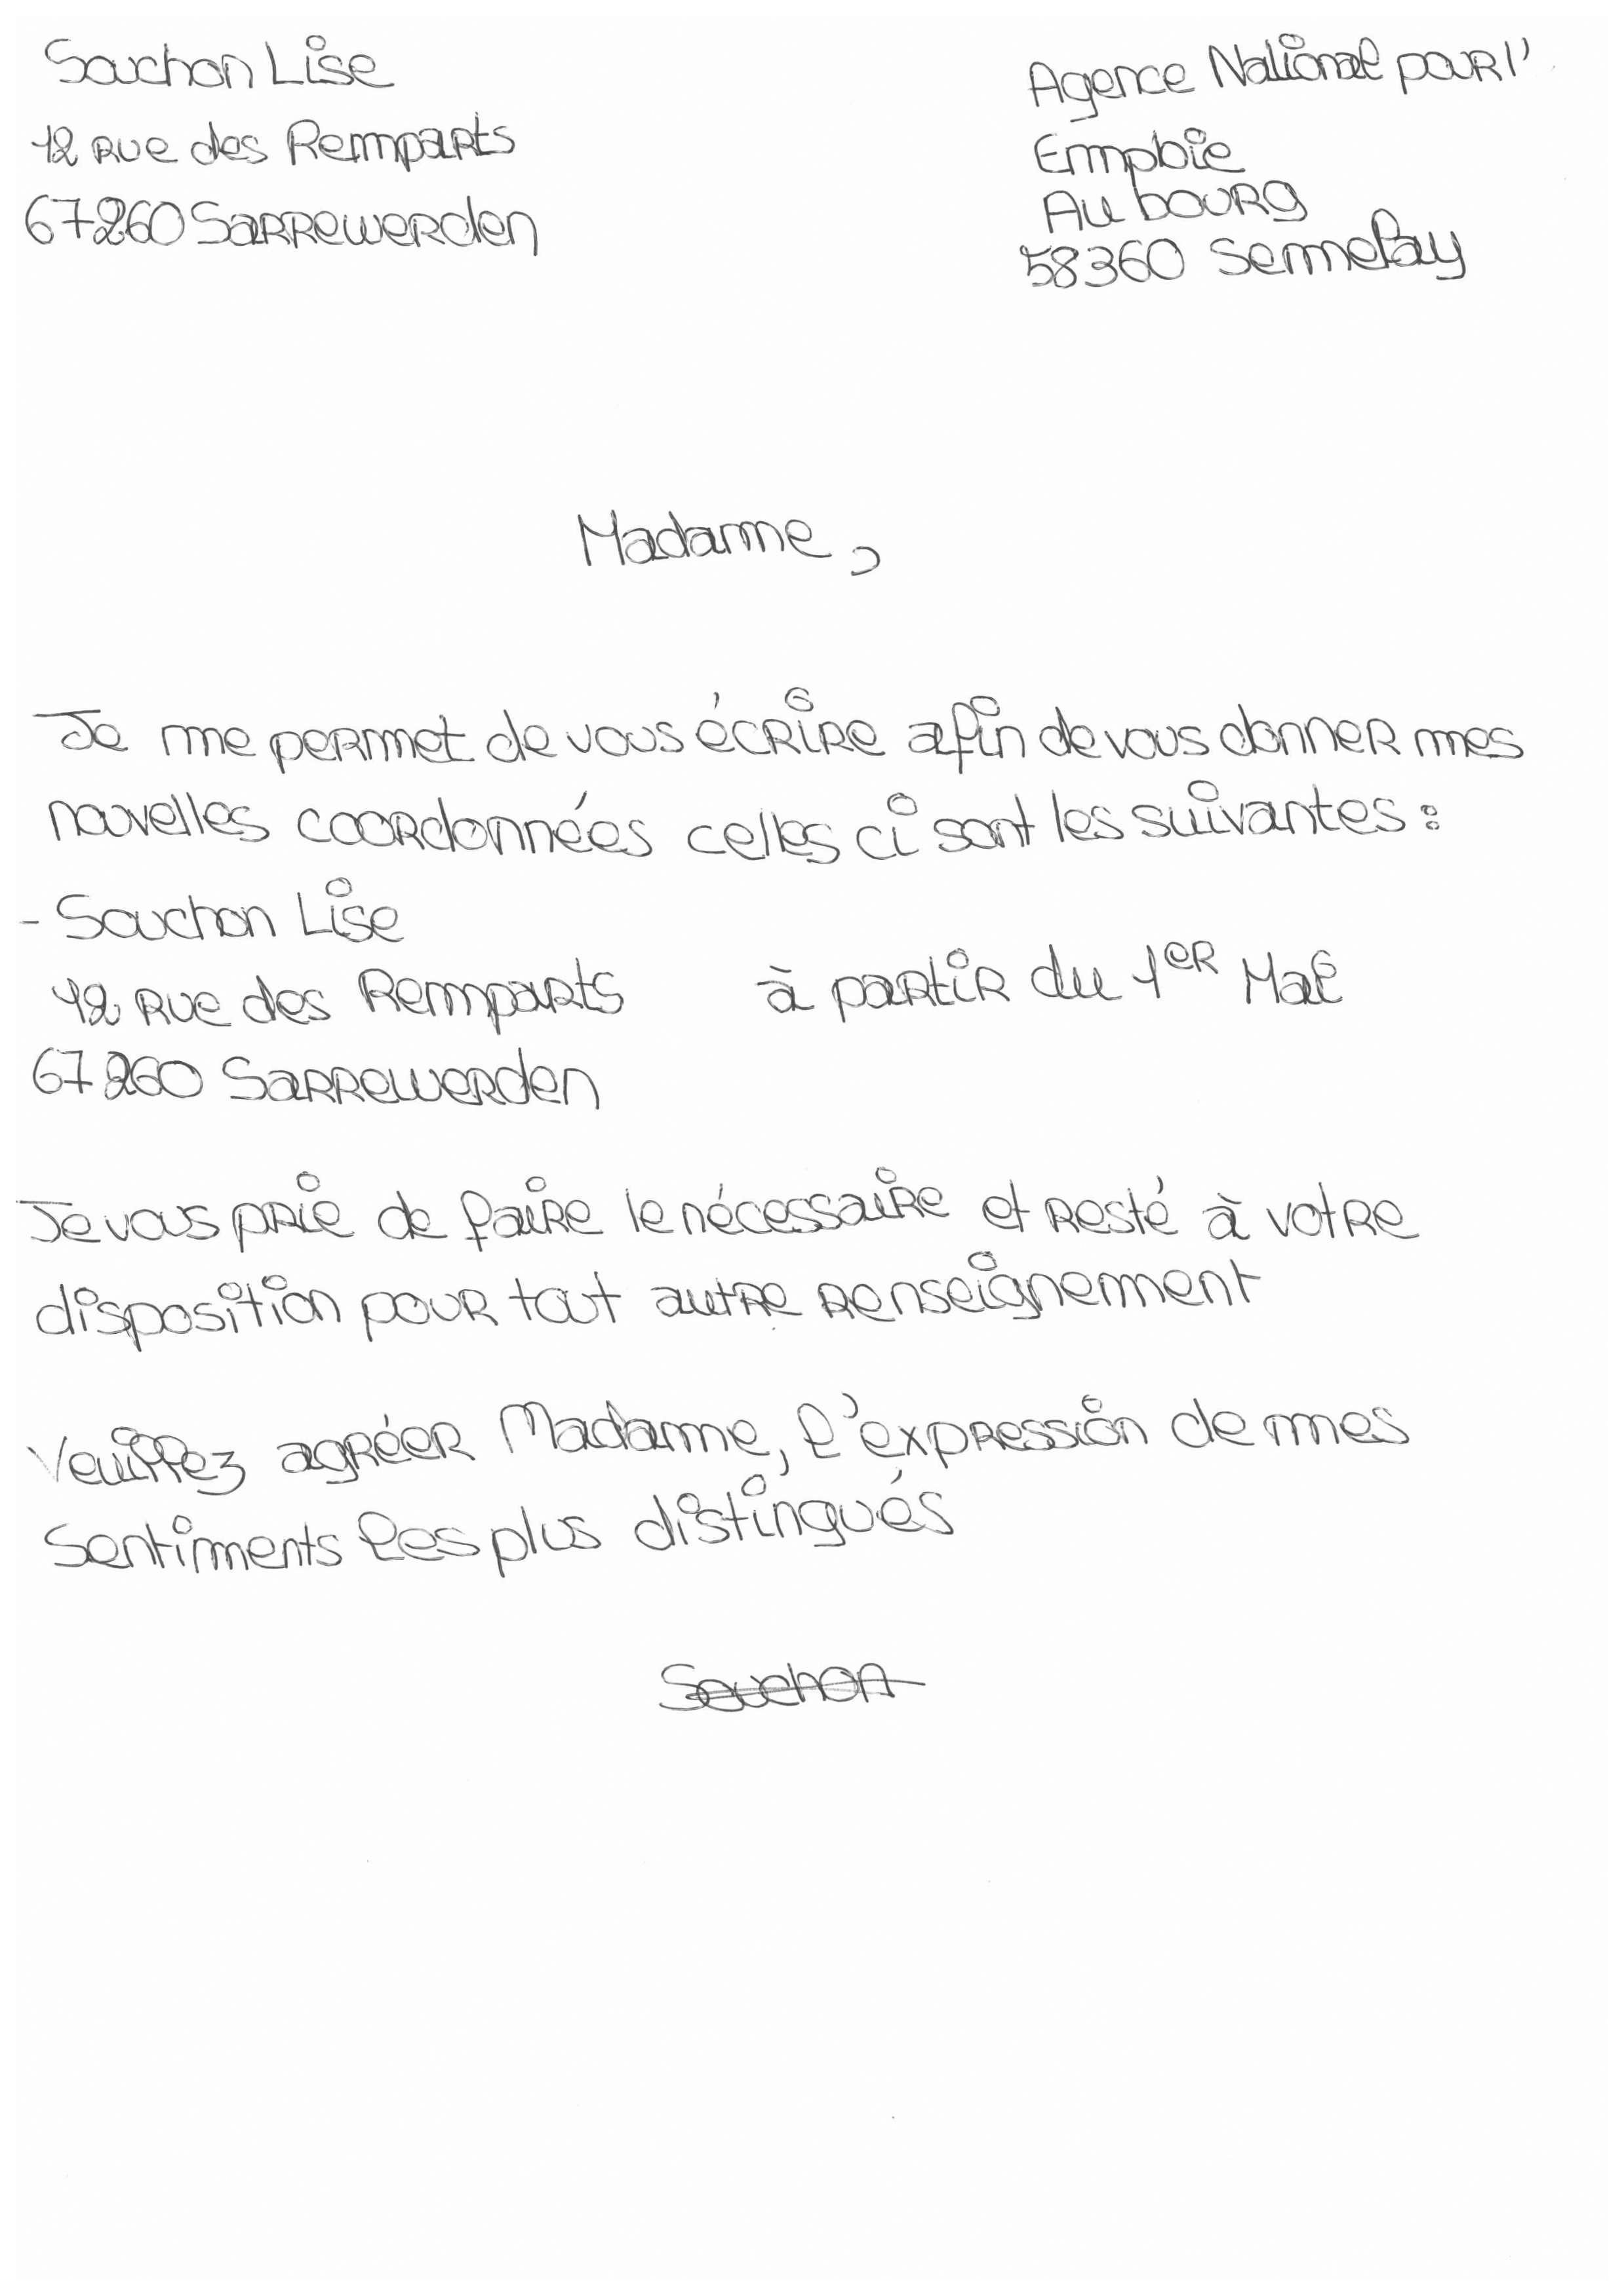 Souchon Lise
12 Rue des Remparts
67260 Sarrewerden
Agence National pour l'
Emploie
Au bourg
58360 Semelay
Madame,
Je me permet de vous écrire afin de vous donner mes
nouvelles coordonnées celles ci sont les suivantes :
- Souchon Lise
12 Rue des Remparts à partir du 1er Mai
67260 Sarrewerden
Je vous prie de faire le nécessaire et resté à votre
disposition pour tout autre renseignement
Veuillez agréer Madame, l'expression de mes
Sentiments les plus distingués
Souchon